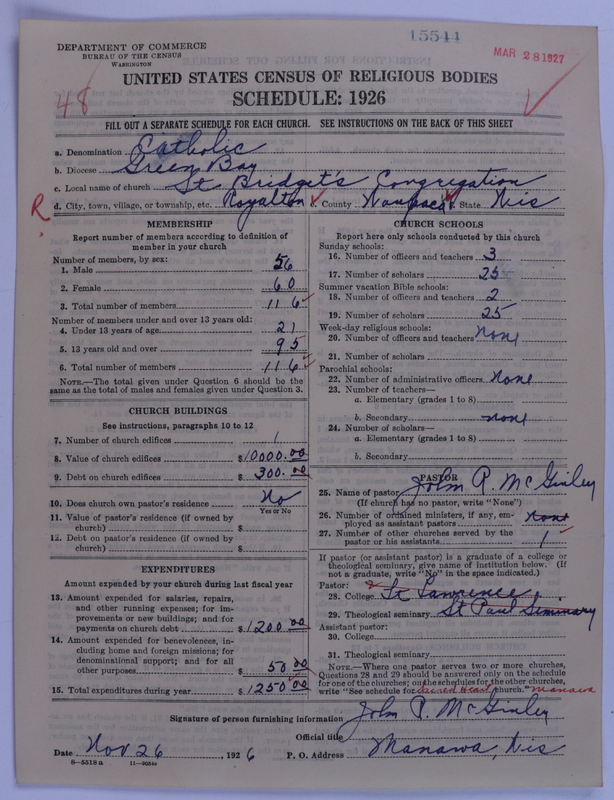 15511
MAR 28 1927
DEPARTMENT OF COMMERCE
BUREAU OF THE CENSUS
WASHINGTON
UNITED STATES CENSUS OF RELIGIOUS BODIES
SCHEDULE: 1926
48
FILL OUT A SEPARATE SCHEDULE FOR EACH CHURCH. SEE INSTRUCTIONS ON THE BACK OF THIS SHEET
a. Denomination Catholic
b. Diocese Green Bay
c. Local name of church St Bridget's Congregation
R d. City, town, village, or township, etc. Royalton e. County Waupaca f. State Wis
MEMBERSHIP
Report number of members according to definition of
member in your church
Number of members, by sex:
1. Male 56
2. Female 60
3. Total number of members 116
Number of members under and over 13 years old:
4. Under 13 years of age 21
5. 13 years old and over 95
6. Total number of members 116
NOTE.—The total given under Question 6 should be the
same as the total of males and females given under Question 3.
CHURCH BUILDINGS
See instructions, paragraphs 10 to 12
7. Number of church edifices 1
8. Value of church edifices $10000.00
9. Debt on church edifices $300.00
10. Does church own pastor's residence? No
Yes or No
11. Value of pastor's residence (if owned by
church) $
12. Debt on pastor's residence (if owned by
church) $
EXPENDITURES
Amount expended by your church during last fiscal year
13. Amount expended for salaries, repairs,
and other running expenses; for im-
provements or new buildings; and for
payments on church debt $1200.00
14. Amount expended for benevolences, in-
cluding home and foreign missions; for
denominational support; and for all
other purposes $50.00
15. Total expenditures during year $1250.00
CHURCH SCHOOLS
Report here only schools conducted by this church
Sunday schools:
16. Number of officers and teachers 3
17. Number of scholars 25
Summer vacation Bible schools:
18. Number of officers and teachers 2
19. Number of scholars 25
Week-day religious schools:
20. Number of officers and teachers none
21. Number of scholars
Parochial schools:
22. Number of administrative officers none
23. Number of teachers—
a. Elementary (grades 1 to 8)
b. Secondary none
24. Number of scholars—
a. Elementary (grades 1 to 8)
b. Secondary
PASTOR
25. Name of pastor John P. McGinley
(If church has no pastor, write "None")
26. Number of ordained ministers, if any, em-
ployed as assistant pastors none
27. Number of other churches served by the
pastor or his assistants 1
If pastor (or assistant pastor) is a graduate of a college or
theological seminary, give name of institution below. (If
not a graduate, write "No" in the space indicated.)
Pastor:
28. College St Lawrence
29. Theological seminary St Paul Seminary
Assistant pastor:
30. College
31. Theological seminary
NOTE.—Where one pastor serves two or more churches,
Questions 28 and 29 should be answered only on the schedule
for one of the churches; on the schedules for the other churches,
write "See schedule for Sacred Heart church." Manawa
Signature of person furnishing information John P. McGinley
Official title
Date Nov 26, 1926 P. O. Address Manawa, Wis
8-5518a